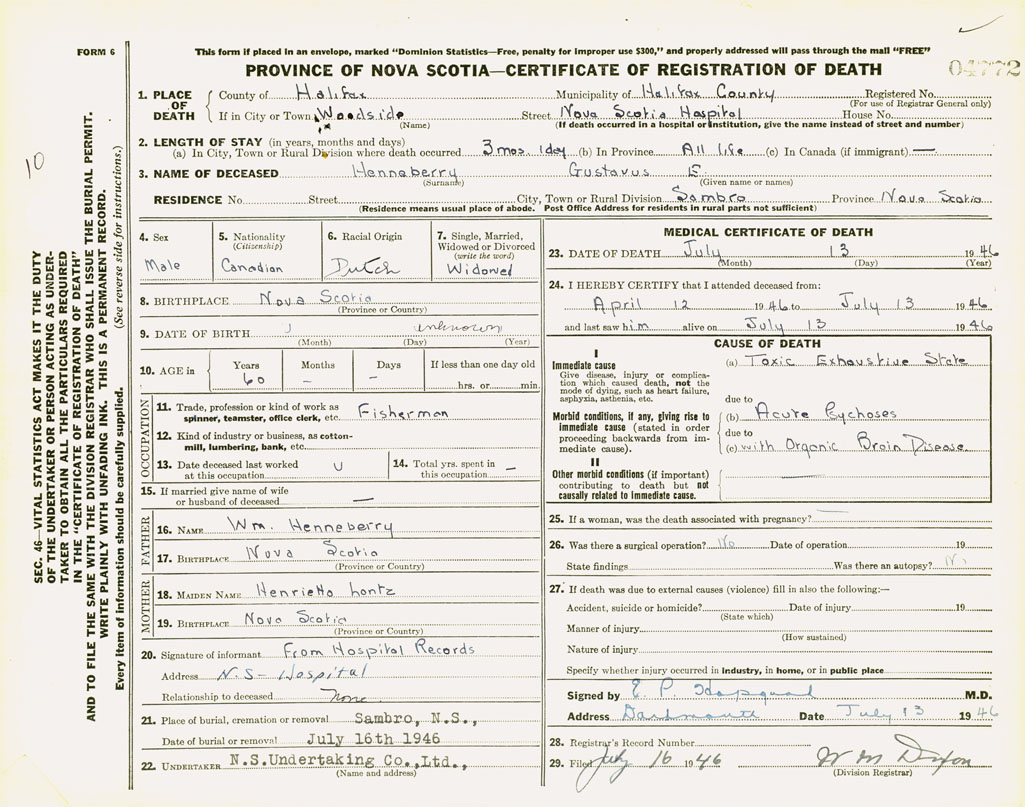 FORM 6
This form if placed in an envelope, marked "Dominion Statistics—Free, penalty for improper use $300," and properly addressed will pass through the mail "FREE"
PROVINCE OF NOVA SCOTIA—CERTIFICATE OF REGISTRATION OF DEATH
04772
10
SEC. 46—VITAL STATISTICS ACT MAKES IT THE DUTY
OF THE UNDERTAKER OR PERSON ACTING AS UNDER-
TAKER TO OBTAIN ALL THE PARTICULARS REQUIRED
IN THE "CERTIFICATE OF REGISTRATION OF DEATH"
AND TO FILE THE SAME WITH THE DIVISION REGISTRAR WHO SHALL ISSUE THE BURIAL PERMIT.
WRITE PLAINLY WITH UNFADING INK. THIS IS A PERMANENT RECORD.
Every item of information should be carefully supplied. (See reverse side for instructions.)
1. PLACE OF DEATH
County of Halifax Municipality of Halifax County Registered No.
(For use of Registrar General only)
If in City or Town Woodside Street Nova Scotia Hospital House No.
(Name) (If death occurred in a hospital or institution, give the name instead of street and number)
2. LENGTH OF STAY (in years, months and days)
(a) In City, Town or Rural Division where death occurred 3 mos. 1 day (b) In Province All life (c) In Canada (if immigrant) —
3. NAME OF DECEASED Henneberry Gustavus E.
(Surname) (Given name or names)
RESIDENCE No. Street City, Town or Rural Division Sambro Province Nova Scotia
(Residence means usual place of abode. Post Office Address for residents in rural parts not sufficient)
4. Sex
Male
5. Nationality
(Citizenship)
Canadian
6. Racial Origin
Dutch
7. Single, Married,
Widowed or Divorced
(write the word)
Widowed
8. BIRTHPLACE Nova Scotia
(Province or Country)
9. DATE OF BIRTH unknown
(Month) (Day) (Year)
10. AGE in
Years
60
Months
—
Days
—
If less than one day old
hrs. or min.
OCCUPATION
11. Trade, profession or kind of work as
spinner, teamster, office clerk, etc. Fisherman
12. Kind of industry or business, as cotton-
mill, lumbering, bank, etc.
13. Date deceased last worked
at this occupation U
14. Total yrs. spent in
this occupation —
15. If married give name of wife
or husband of deceased —
FATHER
16. NAME Wm. Henneberry
17. BIRTHPLACE Nova Scotia
(Province or Country)
MOTHER
18. MAIDEN NAME Henrietta Lontz
19. BIRTHPLACE Nova Scotia
(Province or Country)
20. Signature of informant From Hospital Records
Address N.S- Hospital
Relationship to deceased None
21. Place of burial, cremation or removal Sambro, N.S.,
Date of burial or removal July 16th 1946
22. UNDERTAKER N.S.Undertaking Co.,Ltd.,
(Name and address)
MEDICAL CERTIFICATE OF DEATH
23. DATE OF DEATH July 13 1946
(Month) (Day) (Year)
24. I HEREBY CERTIFY that I attended deceased from:
April 12 1946 to July 13 1946
and last saw him alive on July 13 1946
CAUSE OF DEATH
I
Immediate cause
Give disease, injury or complica-
tion which caused death, not the
mode of dying, such as heart failure,
asphyxia, asthenia, etc.
(a) Toxic Exhaustive State
due to
Morbid conditions, if any, giving rise to
immediate cause (stated in order
proceeding backwards from im-
mediate cause).
(b) Acute Pychoses
due to
(c) with Organic Brain Disease
II
Other morbid conditions (if important)
contributing to death but not
causally related to immediate cause.
25. If a woman, was the death associated with pregnancy?
26. Was there a surgical operation? No Date of operation 19
State findings Was there an autopsy? No
27. If death was due to external causes (violence) fill in also the following:—
Accident, suicide or homicide? Date of injury 19
(State which)
Manner of injury
(How sustained)
Nature of injury
Specify whether injury occurred in industry, in home, or in public place
Signed by E. P. M.D.
Address Dartmouth Date July 13 1946
28. Registrar's Record Number
29. Filed July 16 1946 W M Dixon
(Division Registrar)